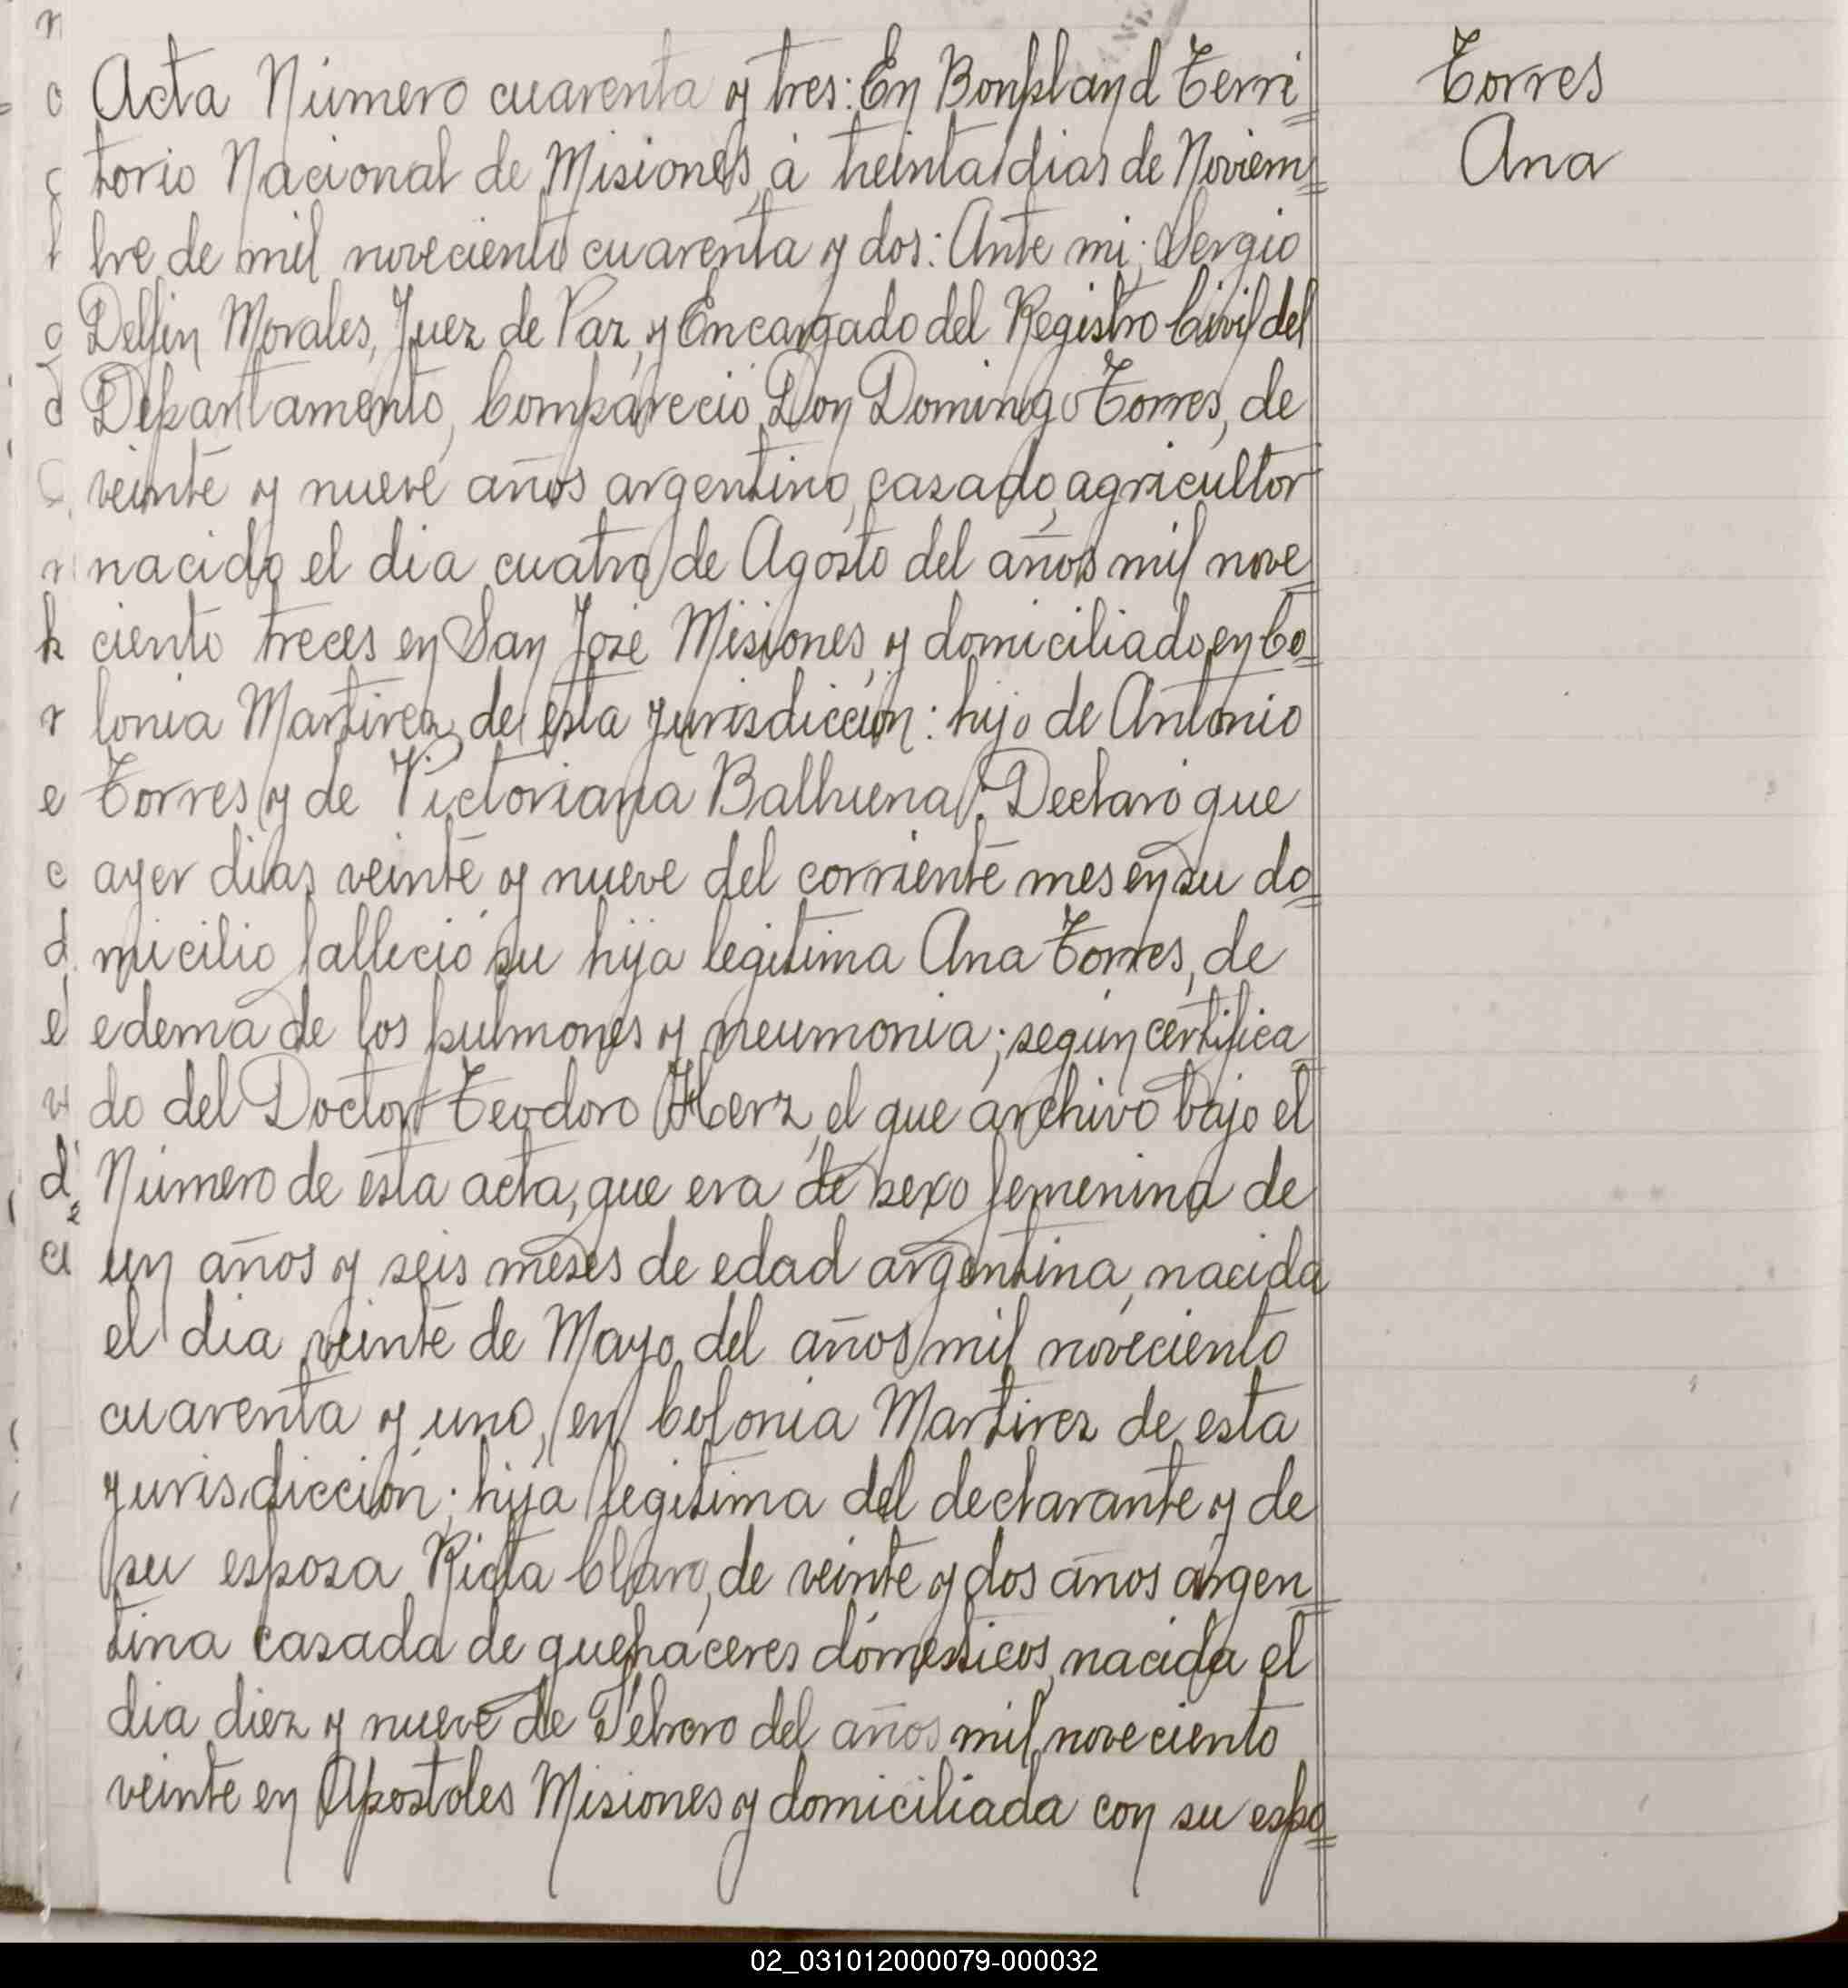 Acta Número cuarenta y tres: En Bonpland Terri=
torio Nacional de Misiones, á treinta dias de Noviem=
bre de mil noveciento cuarenta y dos: Ante mi; Sergio
Delfin Morales, Juez de Paz, y Encargado del Registro Civil del
Departamento, Compareció Don Domingo Torres, de
veinte y nueve años argentino, casado, agricultor
nacido el dia cuatro de Agosto del años mil nove=
ciento treces en San José Misiones, y domiciliado en Co=
lonia Martirez de esta jurisdicción: hijo de Antonio
Torres y de Victoriana Balhuena: Declaró que
ayer dias veinte y nueve del corriente mes en su do=
micilio falleció su hija legitima Ana Torres, de
edema de los pulmones y neumonia; según certifica=
do del Doctor Teodoro Herz, el que archivo bajo el
Número de esta acta, que era de sexo femenina de
un años y seis meses de edad argentina, nacida
el dia veinte de Mayo del años mil noveciento
cuarenta y uno, en Colonia Martirez de esta
jurisdicción; hija legitima del declarante y de
su esposa Ricta Claro, de veinte y dos años argen=
tina casada de quehaceres domesticos, nacida el
dia diez y nueve de Febrero del años mil noveciento
veinte en Apostoles Misiones y domiciliada con su espo=
Torres
Ana
02_031012000079-000032